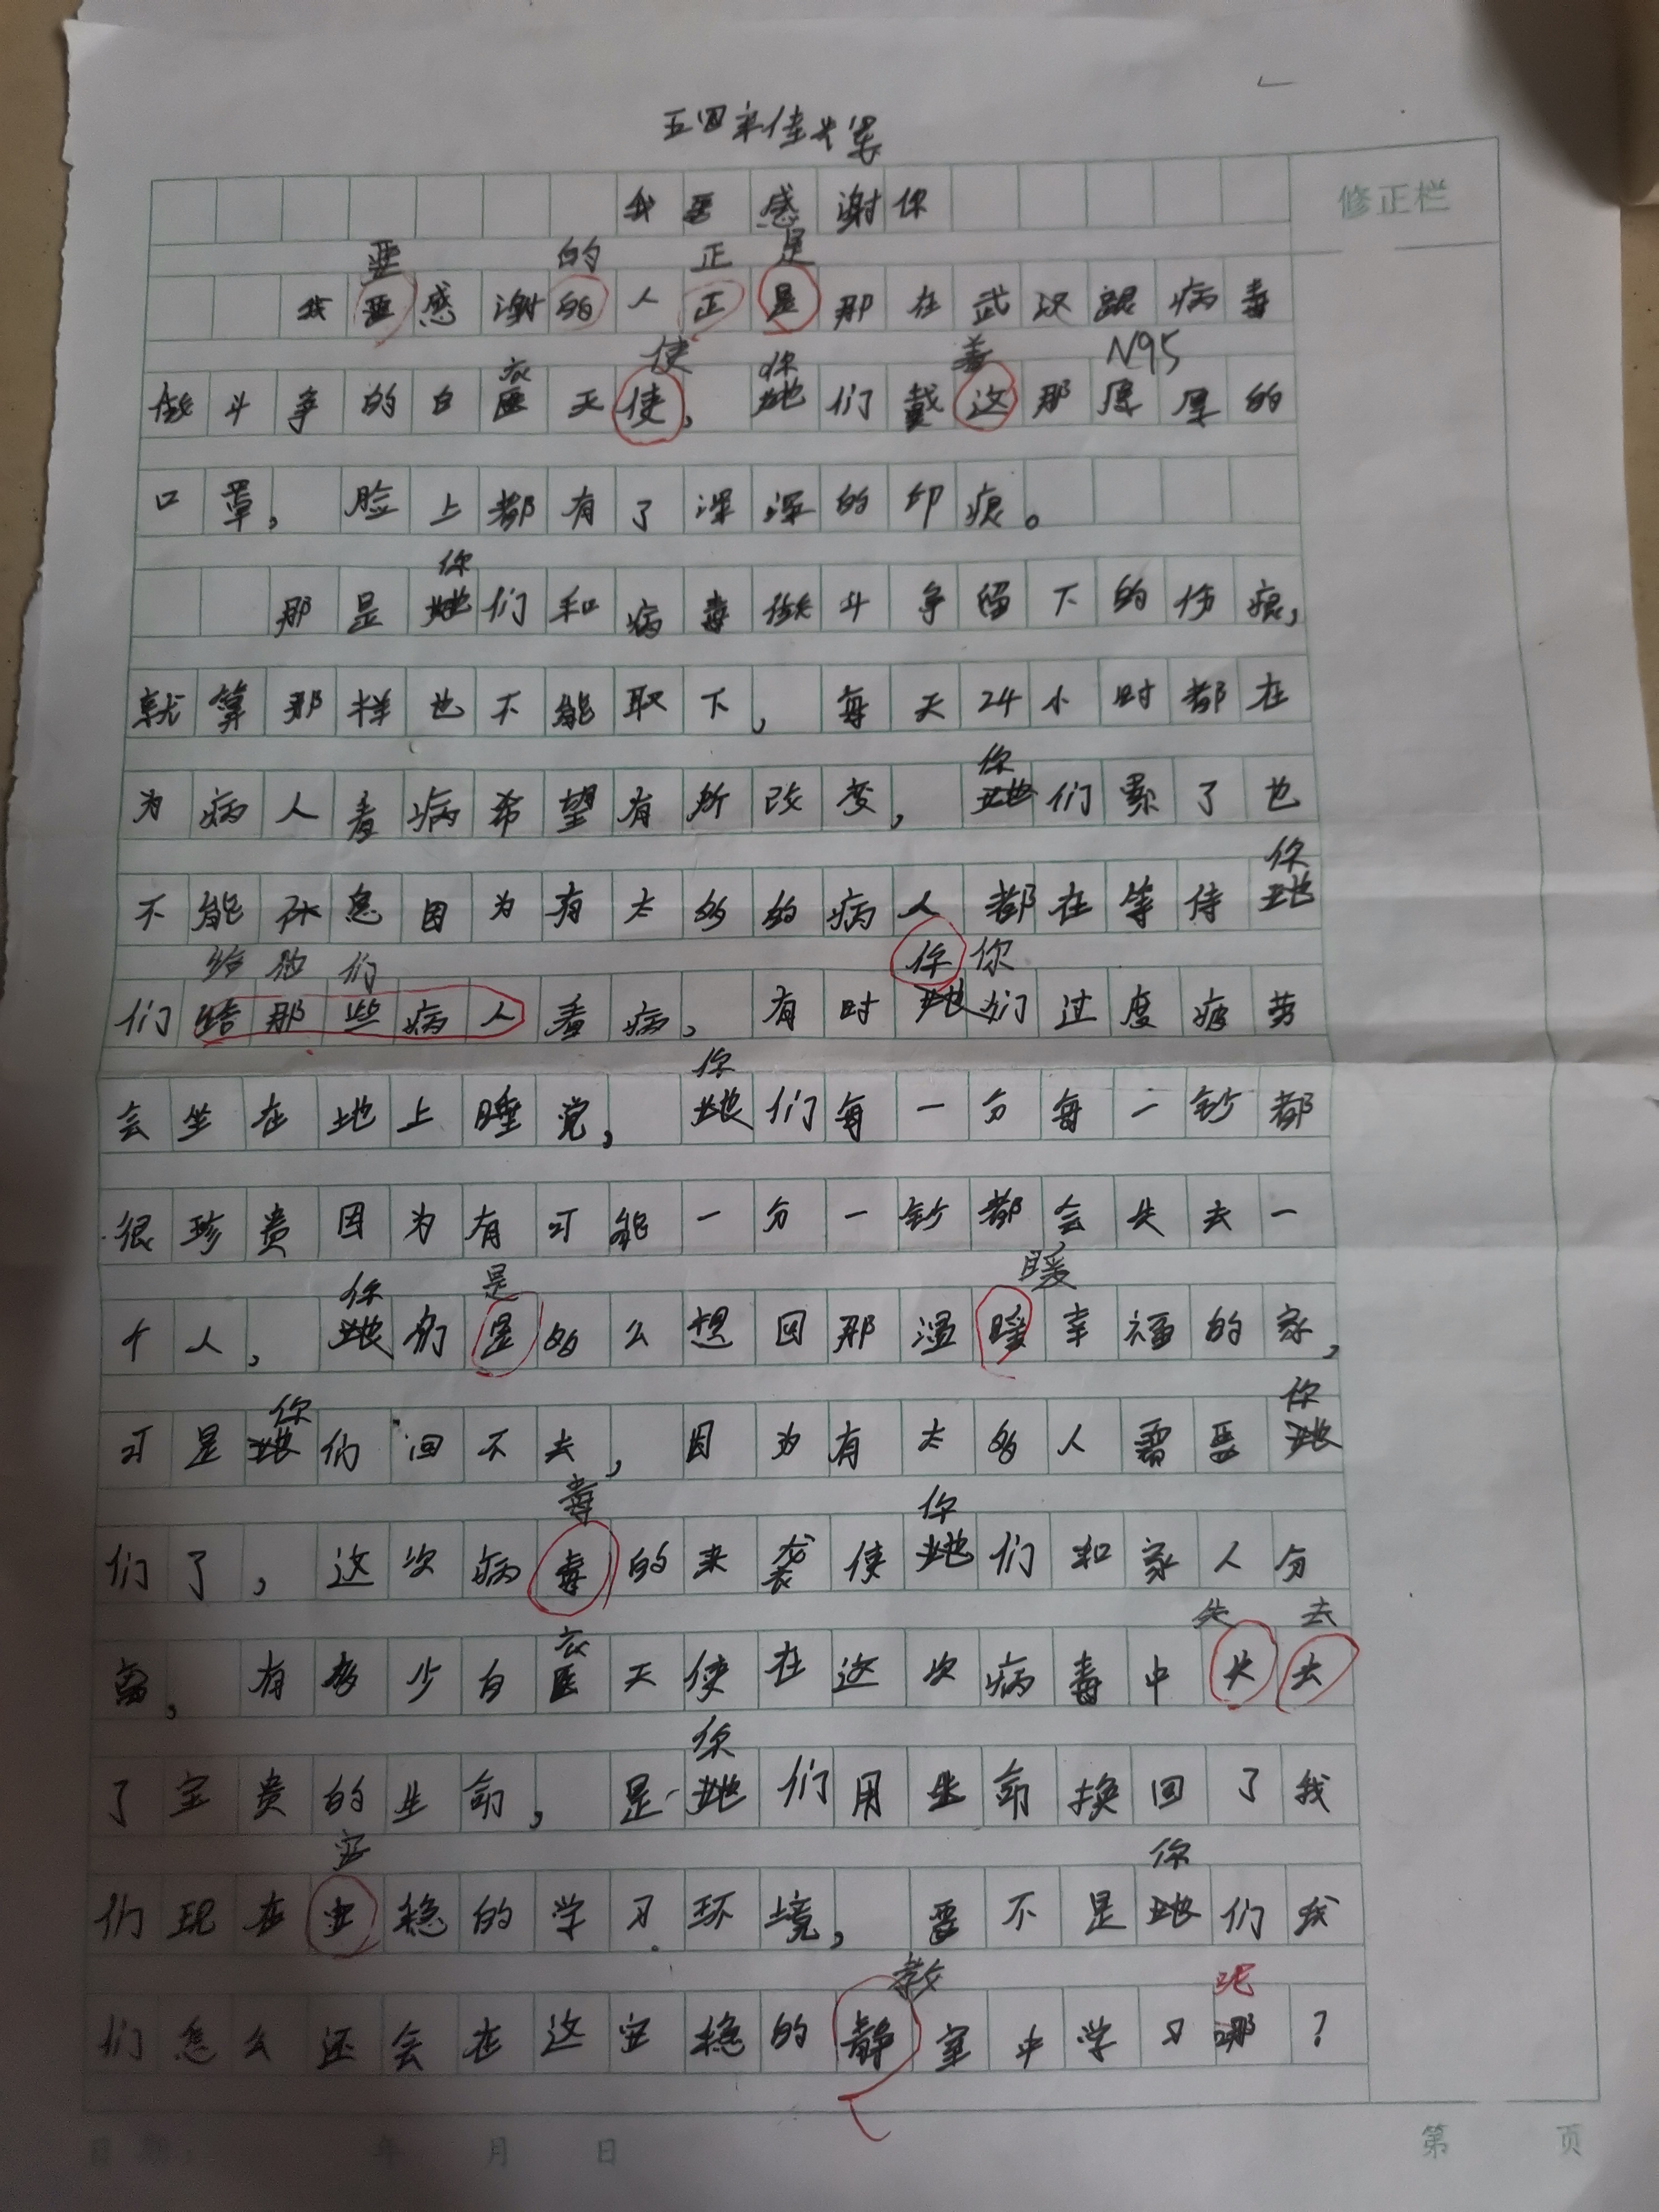 五四宋佳
修正栏
我要感谢你
要 的 正 是
我要感谢的人正是那在武汉跟病毒
衣 使 你 着 N95
做斗争的白医天使，她们戴这那厚厚的
口罩，脸上都有了深深的印痕。
你
那是她们和病毒做斗争留下的伤痕，
就算那样也不能取下，每天24小时都在
你
为病人看病希望有所改变，她们累了也
你
不能休息因为有太多的病人都在等待她
给他们 你 你
们给那些病人看病，有时她们过度疲劳
你
会坐在地上睡觉，她们每一分每一钞都
很珍贵因为有可能一分一钞都会失去一
你 是 暖
个人，她们是多么想回那温暖幸福的家，
你 你
可是她们回不去，因为有太多人需要她
毒 你
们了，这次病毒的来袭使她们和家人分
衣 失 去
离，有多少白医天使在这次病毒中失去
你
了宝贵的生命，是她们用生命换回了我
安 你
们现在安稳的学习环境，要不是她们我
教 呢
们怎么还会在这安稳的静室中学习哪？
日期： 年 月 日 第 页